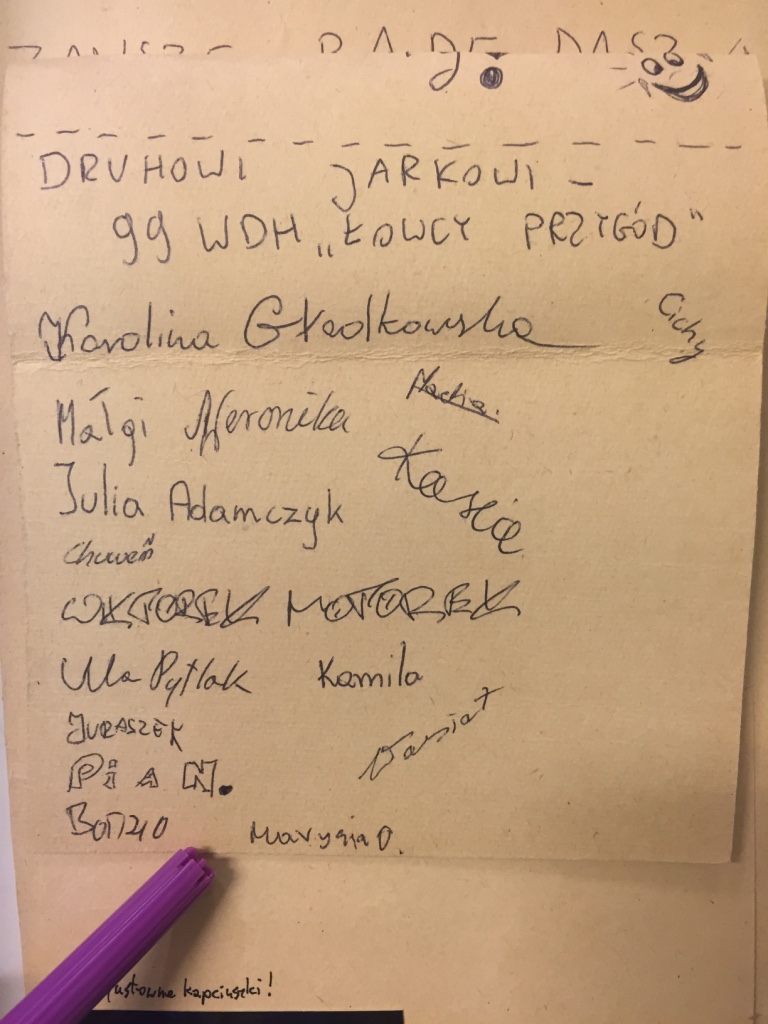 DRUHOWI JARKOWI –
99 WDH „ŁOWCY PRZYGÓD"
Karolina Głodkowska
Cichy
Małgi Weronika
Julia Adamczyk
Kasia
Chuweń
WKTOREK MOTOREK
Ula Pytlak Kamila
JURASZEK
PIAN.
Marysia O.
kapciuszki!